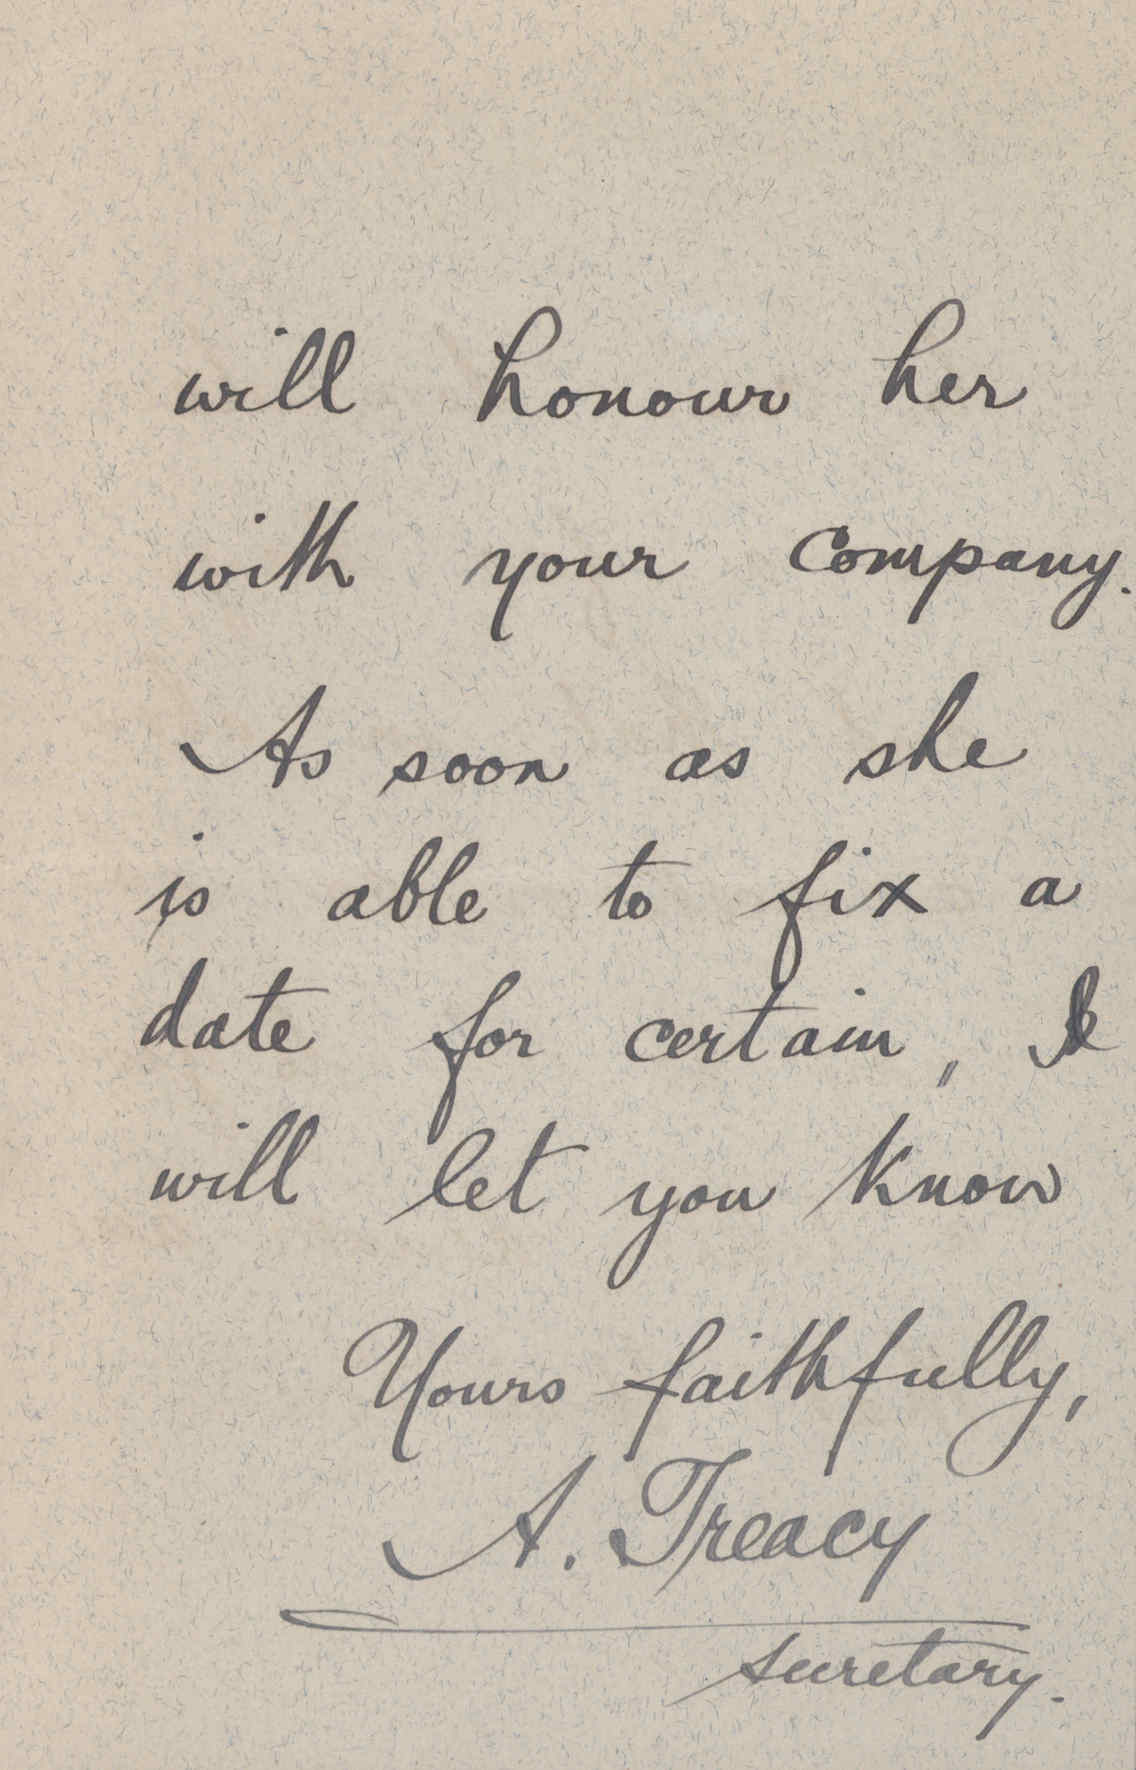 will honour her
with your company.
As soon as she
is able to fix a
date for certain, I
will let you know
Yours faithfully,
A. Treacy
secretary.